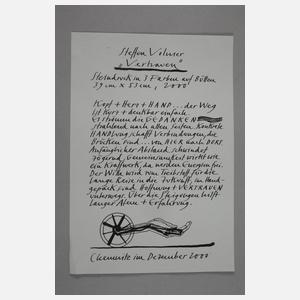 Steffen Volmer
"Vertrauen"
Steindruck in 3 Farben auf Bütten
39 cm x 53 cm, 2000
Kopf + Herz + HAND... der Weg
ist kurz + denkbar einfach.
Es strömen die GEDANKEN
strahlend nach allen Seiten. Konkrete
HANDlung schafft Verbindungen, die
Brücken sind... von HIER nach DORT.
Anfänglicher Abstand schwindet
zögernd, Gemeinsamkeit wirkt wie
ein Kraftwerk, da werden Energien frei.
Der Wille wird zum Treibstoff für die
lange Reise in die Zukunft, im Hand-
gepäck sind Hoffnung + VERTRAUEN
unterwegs. Über die Steigungen hilft
langer Atem + Erfahrung.
Chemnitz im Dezember 2000